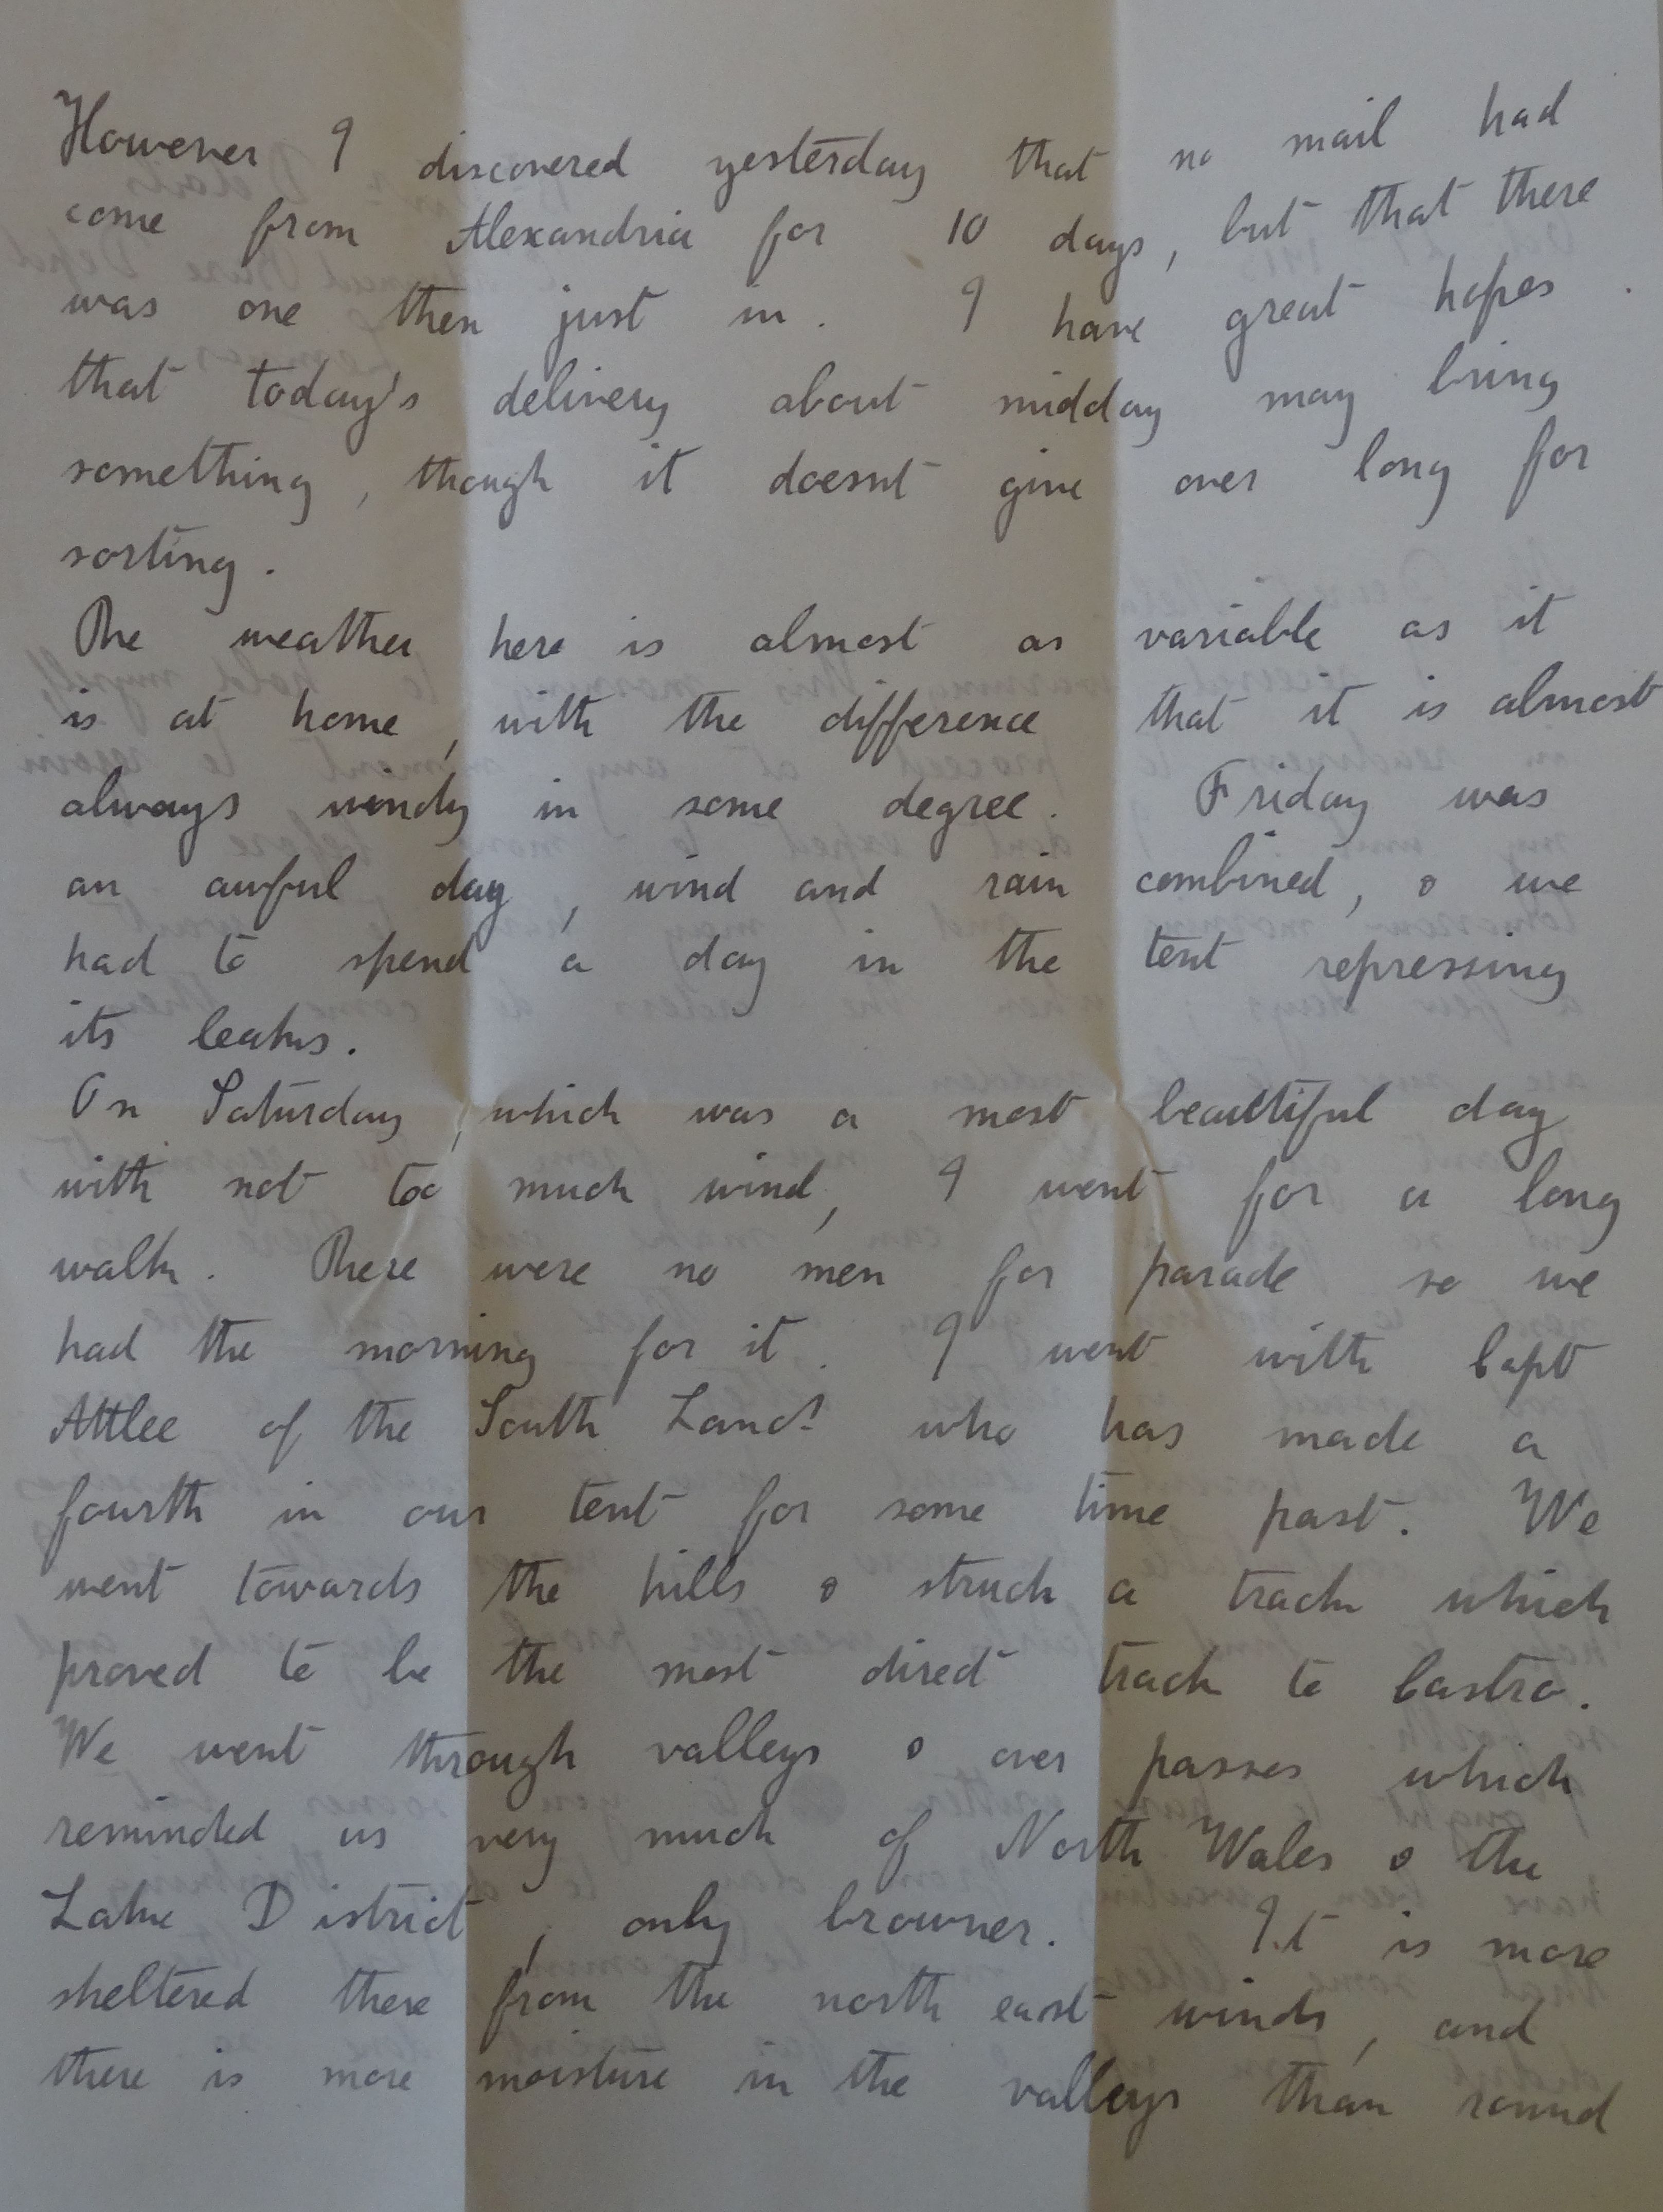 However I discovered yesterday that no mail had
come from Alexandria for 10 days, but that there
was one then just in. I have great hopes
that today's delivery about midday may bring
something, though it doesnt give over long for
sorting.
The weather here is almost as variable as it
is at home, with the difference that it is almost
always windy in some degree. Friday was
an awful day, wind and rain combined, & we
had to spend a day in the tent repressing
its leaks.
On Saturday, which was a most beautiful day
with not too much wind, I went for a long
walk. There were no men for parade so we
had the morning for it. I went with Capt
Attlee of the South Lancs who has made a
fourth in our tent for some time past. We
went towards the hills & struck a track which
proved to be the most direct track to Castro.
We went through valleys & over passes which
reminded us very much of North Wales & the
Lake District, only browner. It is more
sheltered there from the north east winds, and
there is more moisture in the valleys than round